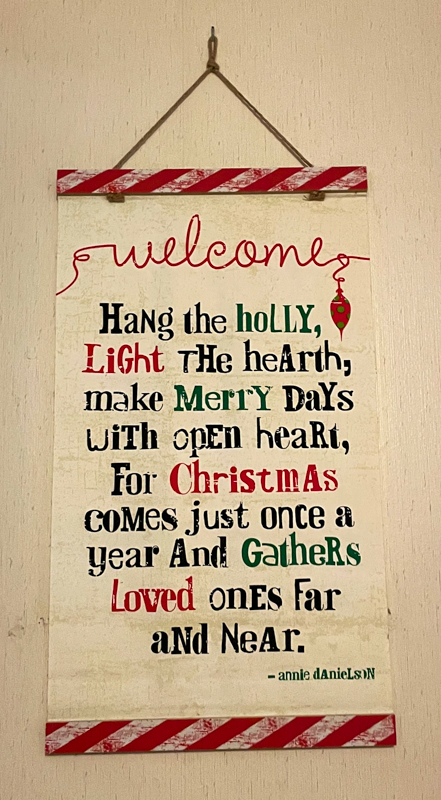 welcome
HaNg the hoLLY,
LiGht THe heArth,
make MerrY DaYs
wiTh opEn heaRt,
For ChristmAs
coMes just once a
year And GatheRs
Loved onEs Far
aNd NeAr.
- annie dAnieLsoN